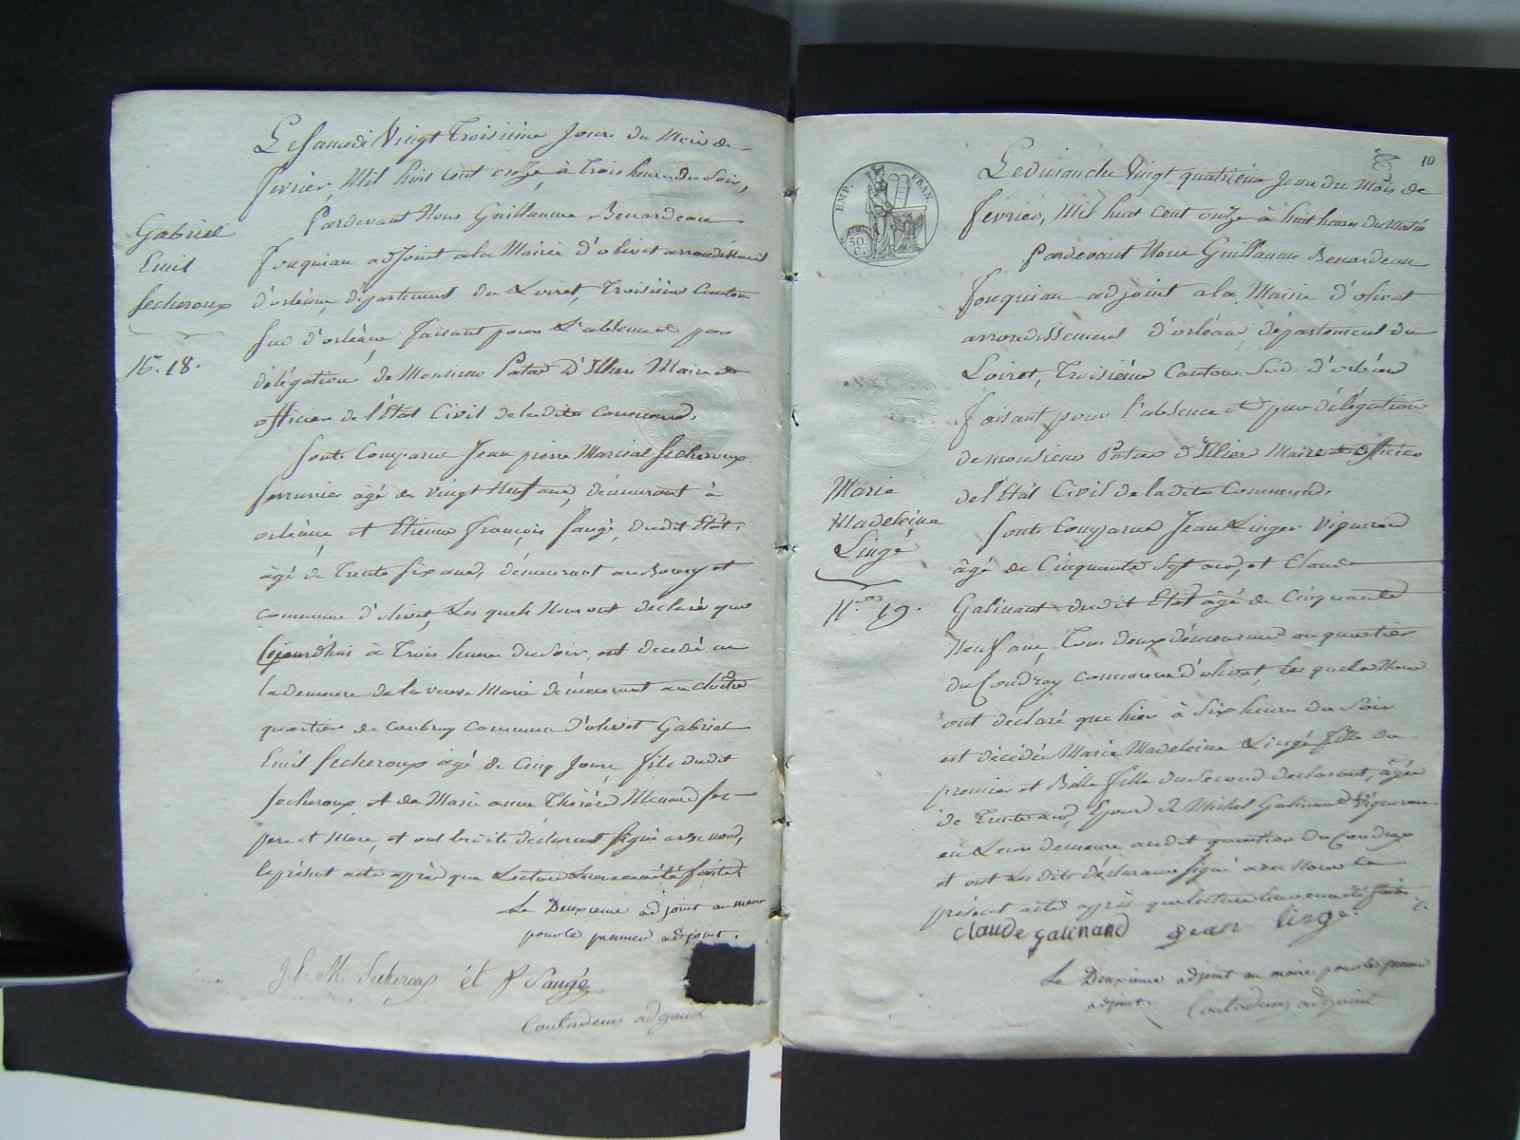 Gabriel
Emil
Secheroux
N.º 18.
Le Samedi Vingt Troisieme Jour du Mois de
fevrier, Mil huit cent onze, à Trois heures du Soir,
Pardevant Nous Guillaume Benardeau
fouquiau adjoint a la Mairie d'olivet arrondissement
d'orléans, département du Loiret, Troisième Canton
Sud d'orléans faisant pour L'absence et par
délégation de Monsieur Patas D'Illiers Maire et
officier de l'État Civil de la dite Commune,
Sont Comparus Jean pierre Marcial Secheroux
Serrurier âgé de vingt Neuf ans, demeurant à
orléans, et Etienne françois Saugé, dudit Etat,
âgé de Trente Six ans, demeurant au Bourg et
commune d'olivet, Les quels Nous ont declaré que
Cejourd'hui à Trois heures du Soir, est décédé en
la demeure de la veuve Marie demeurant au clos
quartier de commune d'olivet Gabriel
Emil Secheroux âgé de Cinq Jours fils dudit
Secheroux et de Marie anne Thérèse Menard ses
pere et Mere, et ont les dits déclarants Signé avec nous,
le présent acte après que Lecture Leur en a été faite.
Le Deuxieme adjoint au maire
pour le premier adjoint.
J. P. M. Secheroux et f Saugé
adjoint
10
EMP. FRAN.
50
C.
Marie
Madeleine
Lingé
N.º 19.
Le dimanche Vingt quatrieme Jour du Mois de
fevrier, Mil huit cent onze à huit heures du Matin
Pardevant Nous Guillaume Benardeau
fouquiau adjoint a la Mairie d'olivet
arrondissement d'orléans, département du
Loiret, Troisième Canton Sud d'orléans
faisant pour l'absence et par délégation
de monsieur Patas d'Illiers Maire et officier
de l'Etat Civil de la dite Commune,
Sont Comparus Jean Linger Vigneron
âgé de Cinquante Sept ans, et Claude
Galinant dudit Etat âgé de Cinquante
Neuf ans, Tous deux demeurans au quartier
du Coudray commune d'olivet, Les quels Nous
ont declaré que hier à Six heures du Soir
est décédée Marie Madeleine Lingé fille du
premier et Belle fille du Second declarant, âgée
de Trente ans, Epouse de Michel Galinand Vigneron
en Leur demeure audit quartier du Coudray
et ont Les dits déclarans Signé avec Nous Le
présent acte après que lecture leur en a été faite.
claude galinand Jean lingé
Le Deuxieme adjoint au maire pour le premier
adjoint. adjoint